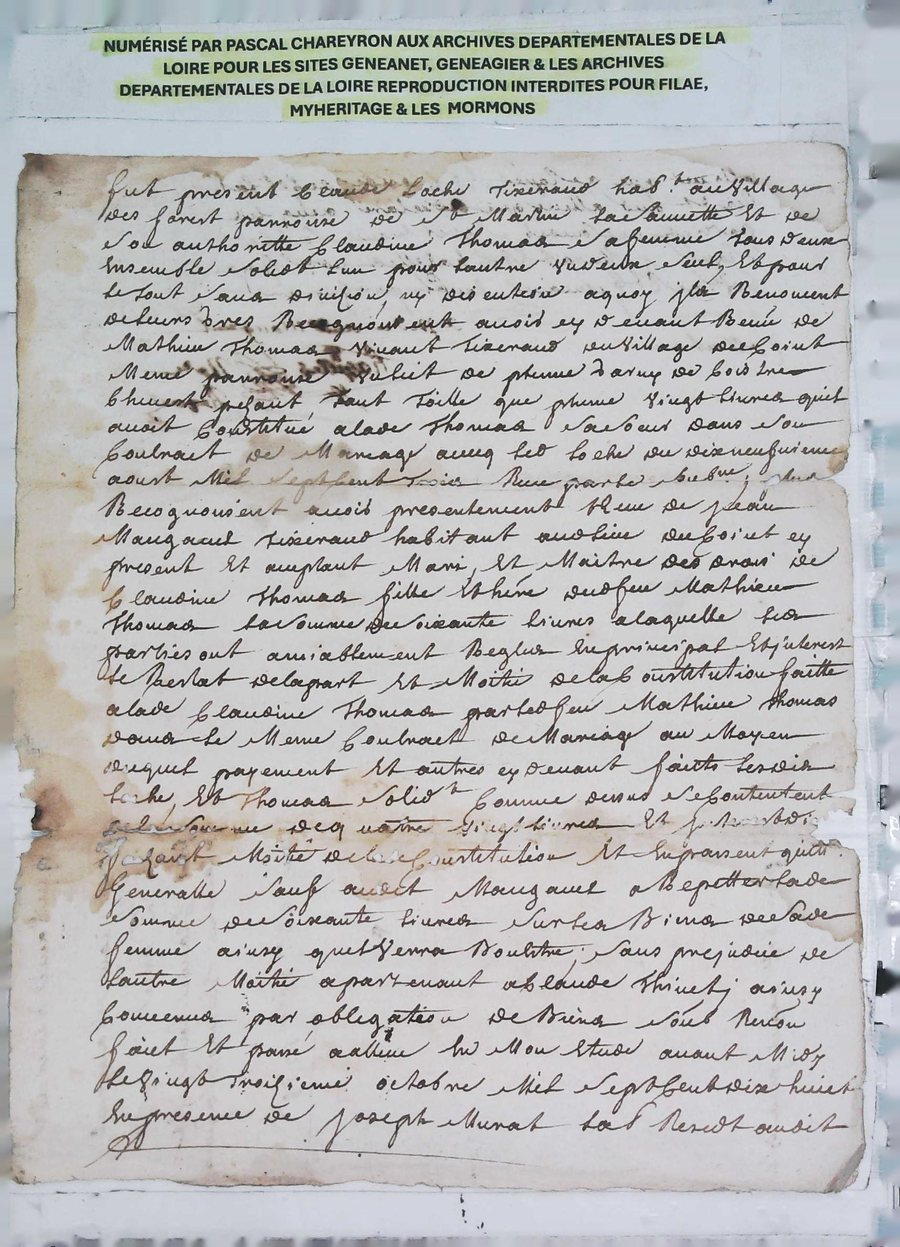 NUMÉRISÉ PAR PASCAL CHAREYRON AUX ARCHIVES DEPARTEMENTALES DE LA
LOIRE POUR LES SITES GENEANET, GENEAGIER & LES ARCHIVES
DEPARTEMENTALES DE LA LOIRE REPRODUCTION INTERDITES POUR FILAE,
MYHERITAGE & LES MORMONS
fut present Claude Loche Tixerand hab.t au Village
des forest parroisse de St Martin Lasauvette Et de
Son authoritte Claudine Thomas Safemme Tous deux
Ensemble Solidt Lun pour Lautre Undeux Seul, Et pour
Le Tout Sans division, ny discution aquoy Renoncent
de Leurs Recognoissent avoir cy devant Receu de
Mathieu Thomas Vivant Tixerand du Village de
Meme parroisse Un Lict de plume Garny de
Chevest Tant Toille que plume Vingt Livres quil
avoit Constitué alade Thomas Sa Soeur dans Son
Contract de Mariage avecq led Loche du dixneufvieme
aoust Mil Sept Cent Trois Receu par Le plus
Recognoissent avoir presentement Receu de Jean
Tixerand habitant audlieu du cy
present Et acceptant Mary, Et Maitre des droits de
Claudine Thomas fille Et here dudfeu Mathieu
Thomas La Somme de Soixante Livres alaquelle Les
parties ont amiablement Reglés En principal Et interest
Le Restat delapart Et Moitié de la Constitution faitte
alade Claudine Thomas par ledfeu Mathieu Thomas
dans Le Meme Contract de Mariage au Moyen
duquel payement Et autres cy devant faicts Lesdis
Loche, Et Thomas Solidt Comme dessus Se Contentent
de la Somme de quatre Vingt Livres Et
Moitié de Constitution Et En passent quitt.
Generalle Sauf audit a Repetter Lade
Somme de Soixante Livres Sur Les Biens de Sade
femme ainsy quil Verra Bon Estre, Sans prejudice de
Lautre Moitié apartenant a Claude ainsy
Convenus par obligation de Biens Soub Renon
faict Et passé En Mon Etude avant Midy
Le Vingt Troizieme octobre Mil Sept Cent dix huict
En presence de Joseph Murat Lab Residt audit